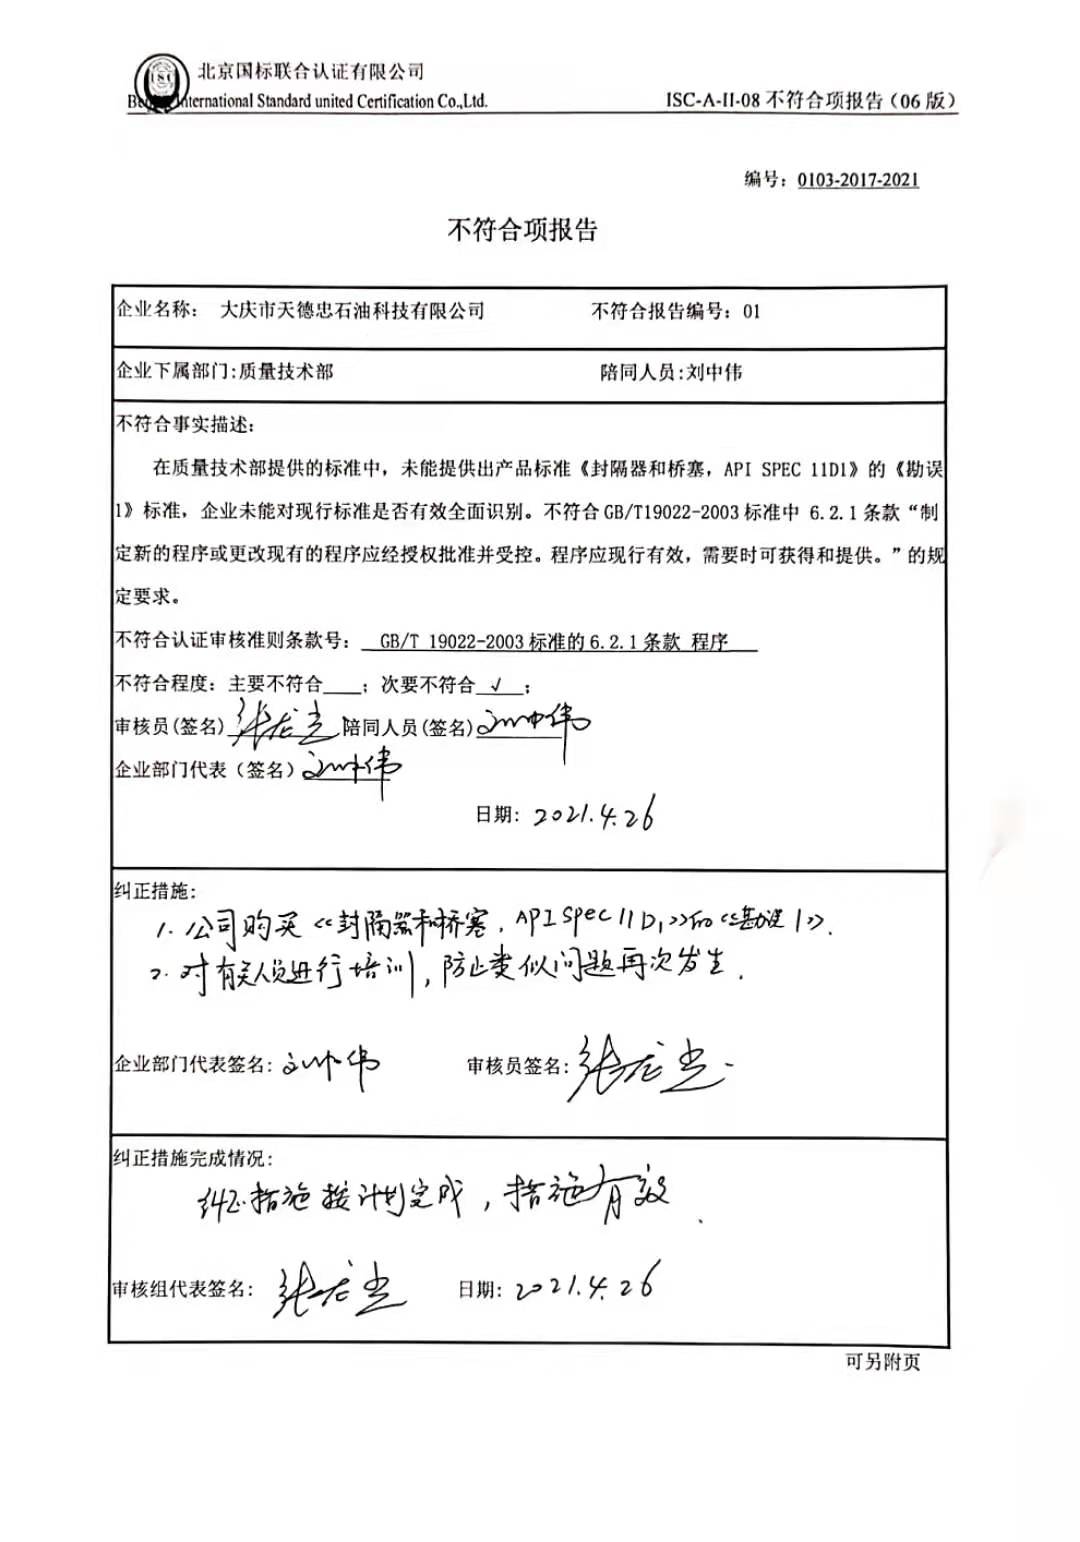 北京国标联合认证有限公司
International Standard united Certification Co.,Ltd.
ISC-A-II-08 不符合项报告（06 版）
编号：0103-2017-2021
不符合项报告
企业名称： 大庆市天德忠石油科技有限公司 不符合报告编号：01
企业下属部门:质量技术部 陪同人员:刘中伟
不符合事实描述：
在质量技术部提供的标准中，未能提供出产品标准《封隔器和桥塞，API SPEC 11D1》的《勘误
1》标准，企业未能对现行标准是否有效全面识别。不符合 GB/T19022-2003 标准中 6.2.1 条款“制
定新的程序或更改现有的程序应经授权批准并受控。程序应现行有效，需要时可获得和提供。”的规
定要求。
不符合认证审核准则条款号： GB/T 19022-2003 标准的 6.2.1 条款 程序
不符合程度：主要不符合 ；次要不符合 √ ；
审核员(签名) 陪同人员(签名)刘中伟
企业部门代表（签名）刘中伟
日期: 2021.4.26
纠正措施：
1. 公司购买《封隔器和桥塞，API Spec 11D1》的《勘误1》.
2. 对有关人员进行培训，防止类似问题再次发生.
企业部门代表签名: 刘中伟 审核员签名:
纠正措施完成情况：
纠正措施按计划完成，措施有效.
审核组代表签名: 日期: 2021.4.26
可另附页